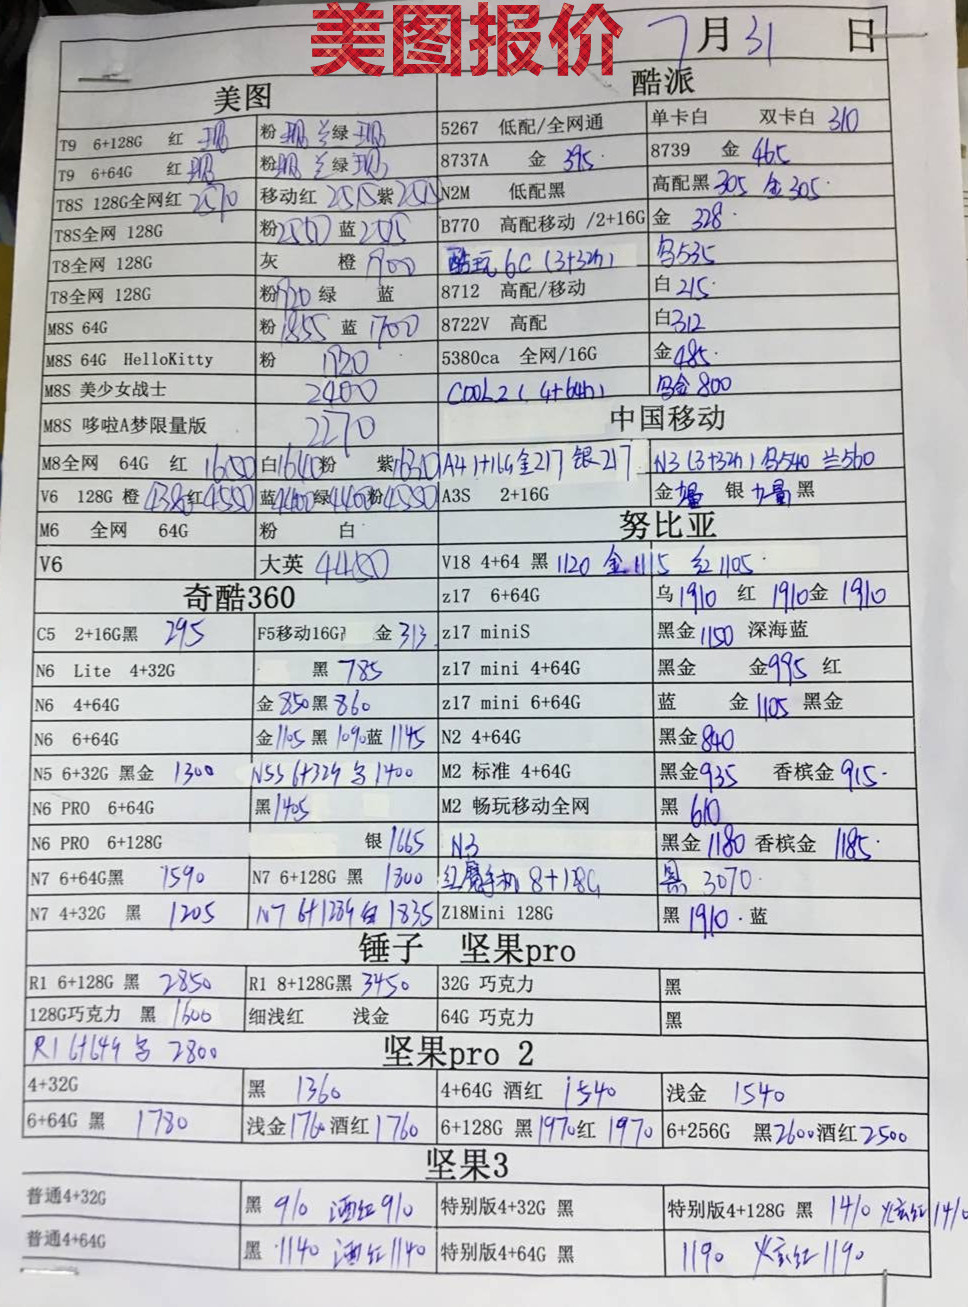 美图报价
7月31日
美图 酷派
T9 6+128G 红 现 粉 现 兰绿 现 5267 低配/全网通 单卡白 双卡白 310
T9 6+64G 红 现 粉现 兰绿 现 8737A 金 395 8739 金 465
T8S 128G全网红 2570 移动红 2515紫 N2M 低配黑 高配黑305 金305
T8S全网 128G 粉 蓝 B770 高配移动 /2+16G 金 328
T8全网 128G 灰 橙 1900 酷玩6C (3+32G) 乌535
T8全网 128G 粉1920 绿 蓝 8712 高配/移动 白215
M8S 64G 粉1855 蓝1700 8722V 高配 白312
M8S 64G HelloKitty 粉 1720 5380ca 全网/16G 金485
M8S 美少女战士 2400 COOL2 (4+64G) 乌金800
M8S 哆啦A梦限量版 2270 中国移动
M8全网 64G 红 1600 白1640粉 紫1630 A4 1+16G金217 银217 N3 (3+32G) 乌540 兰560
V6 128G 橙4380红4550 蓝4400绿4400粉4550 A3S 2+16G 金 银 黑
M6 全网 64G 粉 白 努比亚
V6 大英 4480 V18 4+64 黑1120 金1115 红1105
奇酷360 z17 6+64G 乌1910 红 1910金 1910
C5 2+16G黑 295 F5移动16G 金313 z17 miniS 黑金1150 深海蓝
N6 Lite 4+32G 黑 785 z17 mini 4+64G 黑金 金995 红
N6 4+64G 金850黑860 z17 mini 6+64G 蓝 金1105 黑金
N6 6+64G 金1105 黑1090蓝1145 N2 4+64G 黑金840
N5 6+32G 黑金 1300 N5S 6+32G 乌1400 M2 标准 4+64G 黑金935 香槟金915
N6 PRO 6+64G 黑1405 M2 畅玩移动全网 黑 610
N6 PRO 6+128G 银1665 N3 黑金1180 香槟金 1185
N7 6+64G黑 1590 N7 6+128G 黑 1800 红魔手机8+128G 黑 3070
N7 4+32G 黑 1205 N7 6+128G 白1835 Z18Mini 128G 黑1910 蓝
锤子 坚果pro
R1 6+128G 黑 2850 R1 8+128G黑3450 32G 巧克力 黑
128G巧克力 黑 1600 细浅红 浅金 64G 巧克力 黑
R1 6+64G 乌 2800 坚果pro 2
4+32G 黑 1360 4+64G 酒红 1540 浅金 1540
6+64G 黑 1780 浅金1760酒红1760 6+128G 黑1970红 1970 6+256G 黑2600酒红2500
坚果3
普通4+32G 黑 910 酒红910 特别版4+32G 黑 特别版4+128G 黑 1410 炫红1410
普通4+64G 黑 1140 酒红1140 特别版4+64G 黑 1190 炫红1190